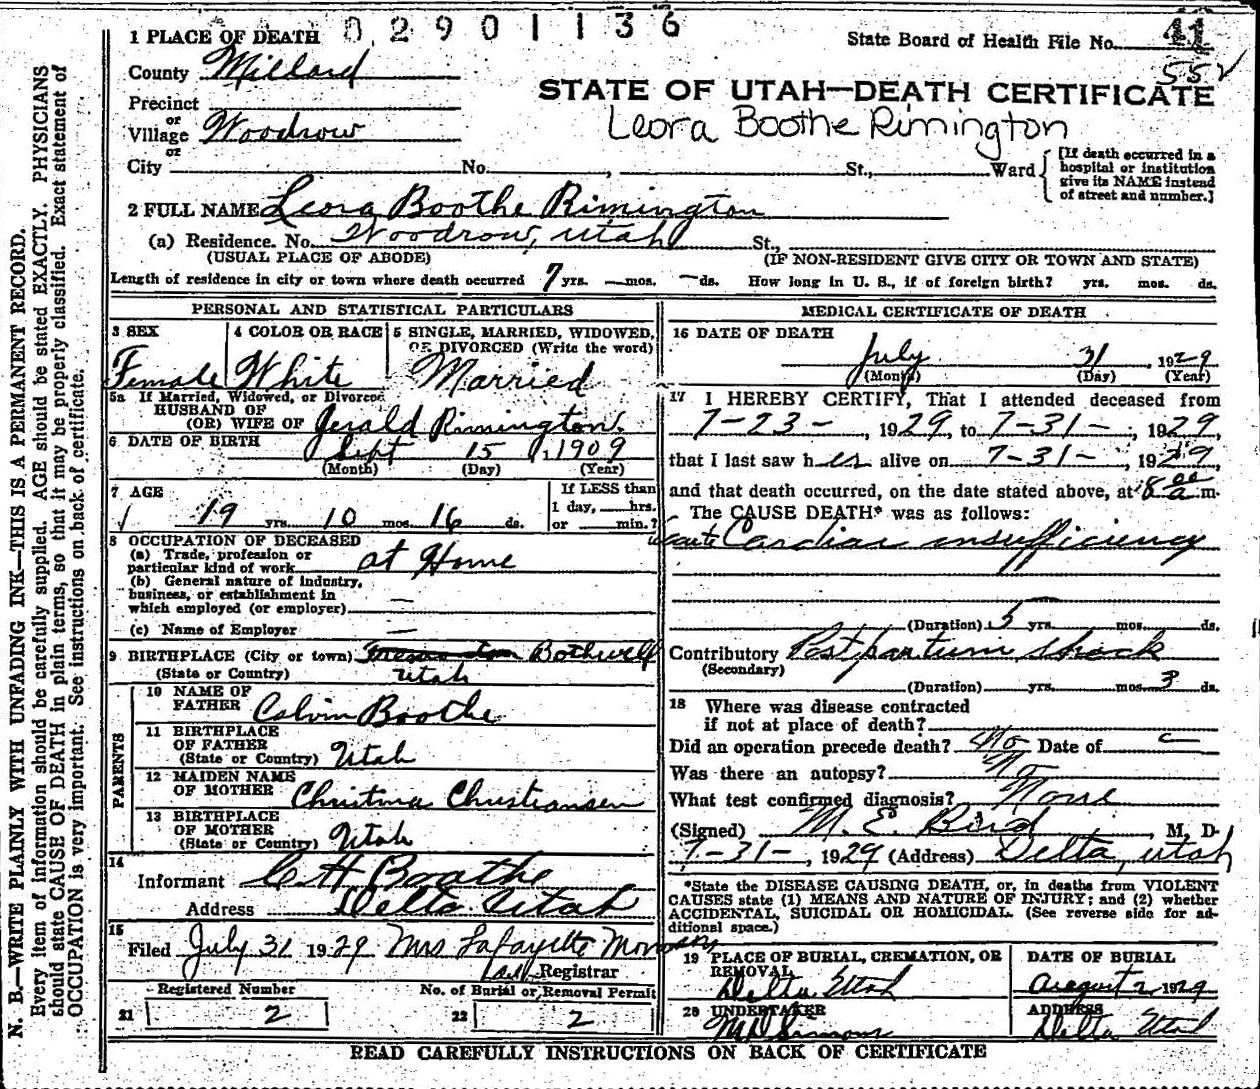 02901136
1 PLACE OF DEATH
State Board of Health File No. 41
552
County Millard
STATE OF UTAH—DEATH CERTIFICATE
Precinct
or
Village Woodrow
Leora Boothe Rimington
or
City No. , St., Ward
[If death occurred in a hospital or institution give its NAME instead of street and number.]
2 FULL NAME Leora Boothe Rimington
(a) Residence. No. Woodrow, Utah St.,
(USUAL PLACE OF ABODE) (IF NON-RESIDENT GIVE CITY OR TOWN AND STATE)
Length of residence in city or town where death occurred 7 yrs. — mos. — ds. How long in U. S., if of foreign birth? yrs. mos. ds.
PERSONAL AND STATISTICAL PARTICULARS
3 SEX
Female
4 COLOR OR RACE
White
5 SINGLE, MARRIED, WIDOWED,
OR DIVORCED (Write the word)
Married
5a If Married, Widowed, or Divorced
HUSBAND OF
(OR) WIFE OF Jerald Rimington.
6 DATE OF BIRTH Sept 15, 1909
(Month) (Day) (Year)
7 AGE
19 yrs. 10 mos. 16 ds.
If LESS than
1 day, hrs.
or min.?
8 OCCUPATION OF DECEASED
(a) Trade, profession or
particular kind of work at Home
(b) General nature of industry,
business, or establishment in
which employed (or employer) —
(c) Name of Employer —
9 BIRTHPLACE (City or town) Bothwell
(State or Country) Utah
PARENTS
10 NAME OF
FATHER Calvin Boothe
11 BIRTHPLACE
OF FATHER
(State or Country) Utah
12 MAIDEN NAME
OF MOTHER Christina Christiansen
13 BIRTHPLACE
OF MOTHER
(State or Country) Utah
14
Informant C H Boothe
Address Delta Utah
15
Filed July 31 1929 Mrs Lafayette
Registrar
Registered Number
21 2
No. of Burial or Removal Permit
22 2
MEDICAL CERTIFICATE OF DEATH
16 DATE OF DEATH
July 31 1929
(Month) (Day) (Year)
17 I HEREBY CERTIFY, That I attended deceased from
7-23-, 1929, to 7-31-, 1929,
that I last saw her alive on 7-31-, 1929,
and that death occurred, on the date stated above, at 8 00 a m.
The CAUSE DEATH* was as follows:
acute Cardiac insufficiency
(Duration) 5 yrs. mos. ds.
Contributory Postpartum shock
(Secondary)
(Duration) yrs. mos. 3 ds.
18 Where was disease contracted
if not at place of death?
Did an operation precede death? No Date of —
Was there an autopsy? No
What test confirmed diagnosis? None
(Signed) M. E. Bird, M. D.
7-31-, 1929 (Address) Delta, Utah
*State the DISEASE CAUSING DEATH, or, in deaths from VIOLENT
CAUSES state (1) MEANS AND NATURE OF INJURY; and (2) whether
ACCIDENTAL, SUICIDAL OR HOMICIDAL. (See reverse side for ad-
ditional space.)
19 PLACE OF BURIAL, CREMATION, OR
REMOVAL
Delta, Utah
DATE OF BURIAL
August 2 1929
20 UNDERTAKER
ADDRESS
Delta Utah
READ CAREFULLY INSTRUCTIONS ON BACK OF CERTIFICATE
N. B.—WRITE PLAINLY WITH UNFADING INK—THIS IS A PERMANENT RECORD.
Every item of information should be carefully supplied. AGE should be stated EXACTLY. PHYSICIANS
should state CAUSE OF DEATH in plain terms, so that it may be properly classified. Exact statement of
OCCUPATION is very important. See instructions on back of certificate.